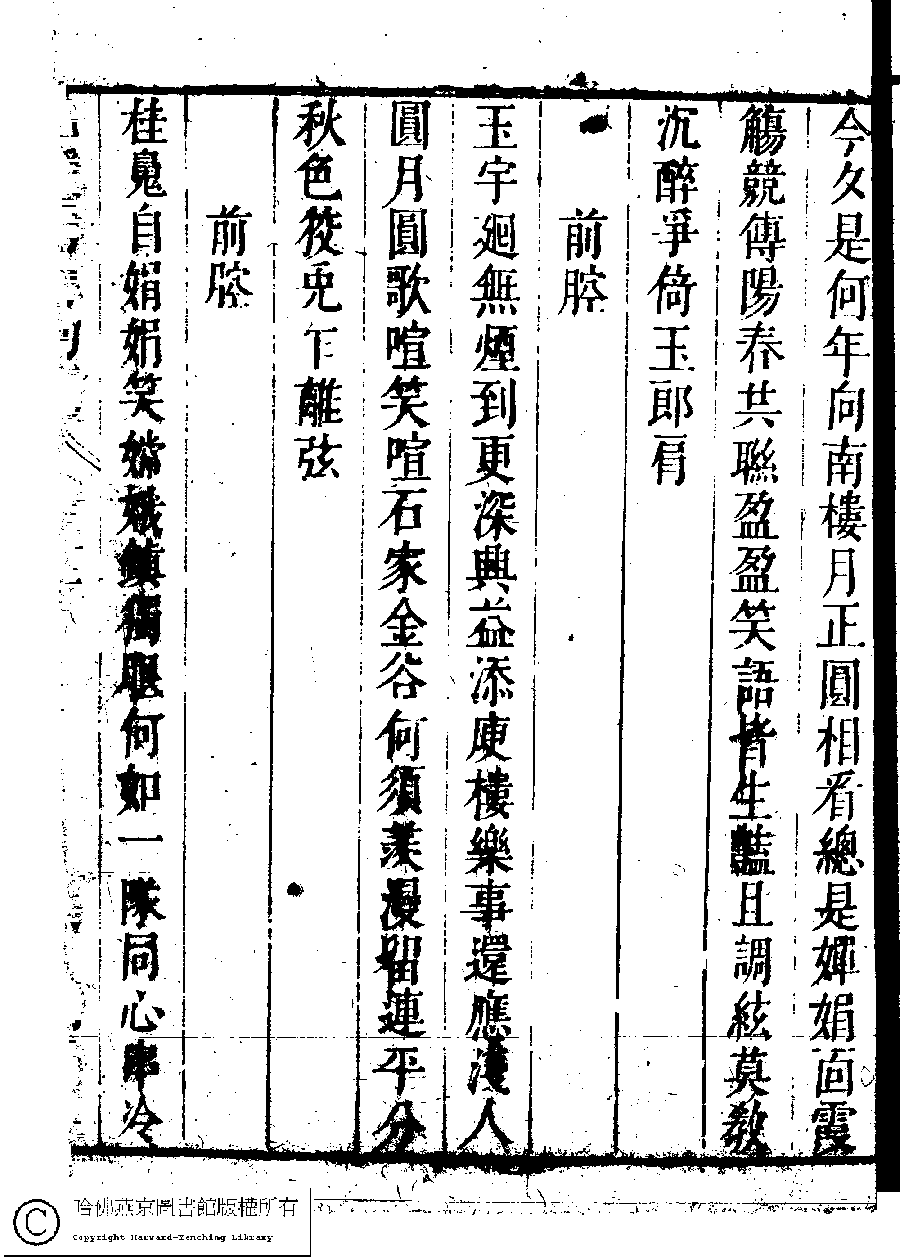 今夕是何年向南樓月正圓相看總是嬋娟面霞
觴競傳陽春共聮盈盈笑語皆生豔且調絃莫教
沉醉爭倚玉郎肩
前腔
玉宇廻無煙到更深興益添庾樓樂事還應淺人
圓月圓歌喧笑喧石家金谷何須羨漫留連平分
秋色狡兎乍離弦
前腔
桂魄自娟娟笑嫦娥鎮獨眠何如一隊同心串冷
哈佛燕京圖書館版權所有
Copyright Harvard-Yenching Library